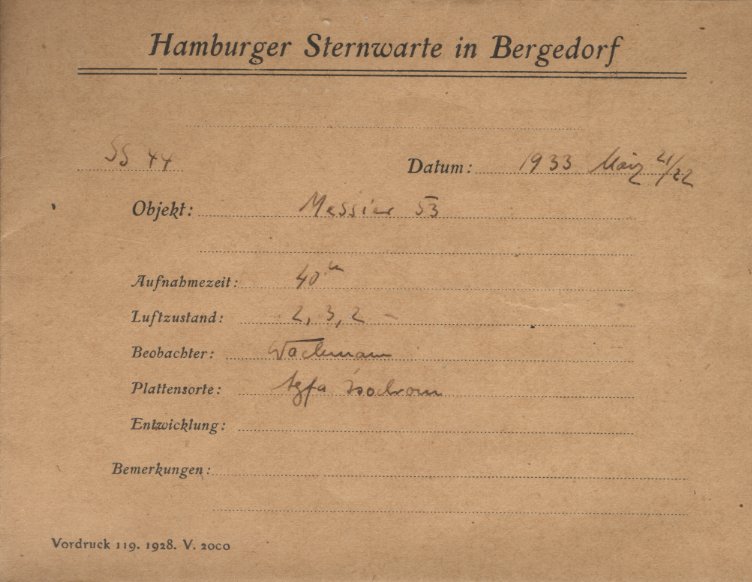 Hamburger Sternwarte in Bergedorf
SS 44 Datum: 1933 März 21/22
Objekt: Messier 53
Aufnahmezeit: 40m
Luftzustand: 2, 3, 2 –
Beobachter: Wachmann
Plattensorte: Agfa Isochrom
Entwicklung:
Bemerkungen:
Vordruck 119. 1928. V. 2000